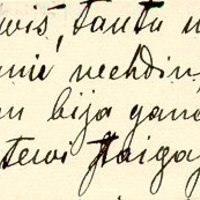 wiś, tautu n
anie nechdin,
n bija gana
tewi staiga,